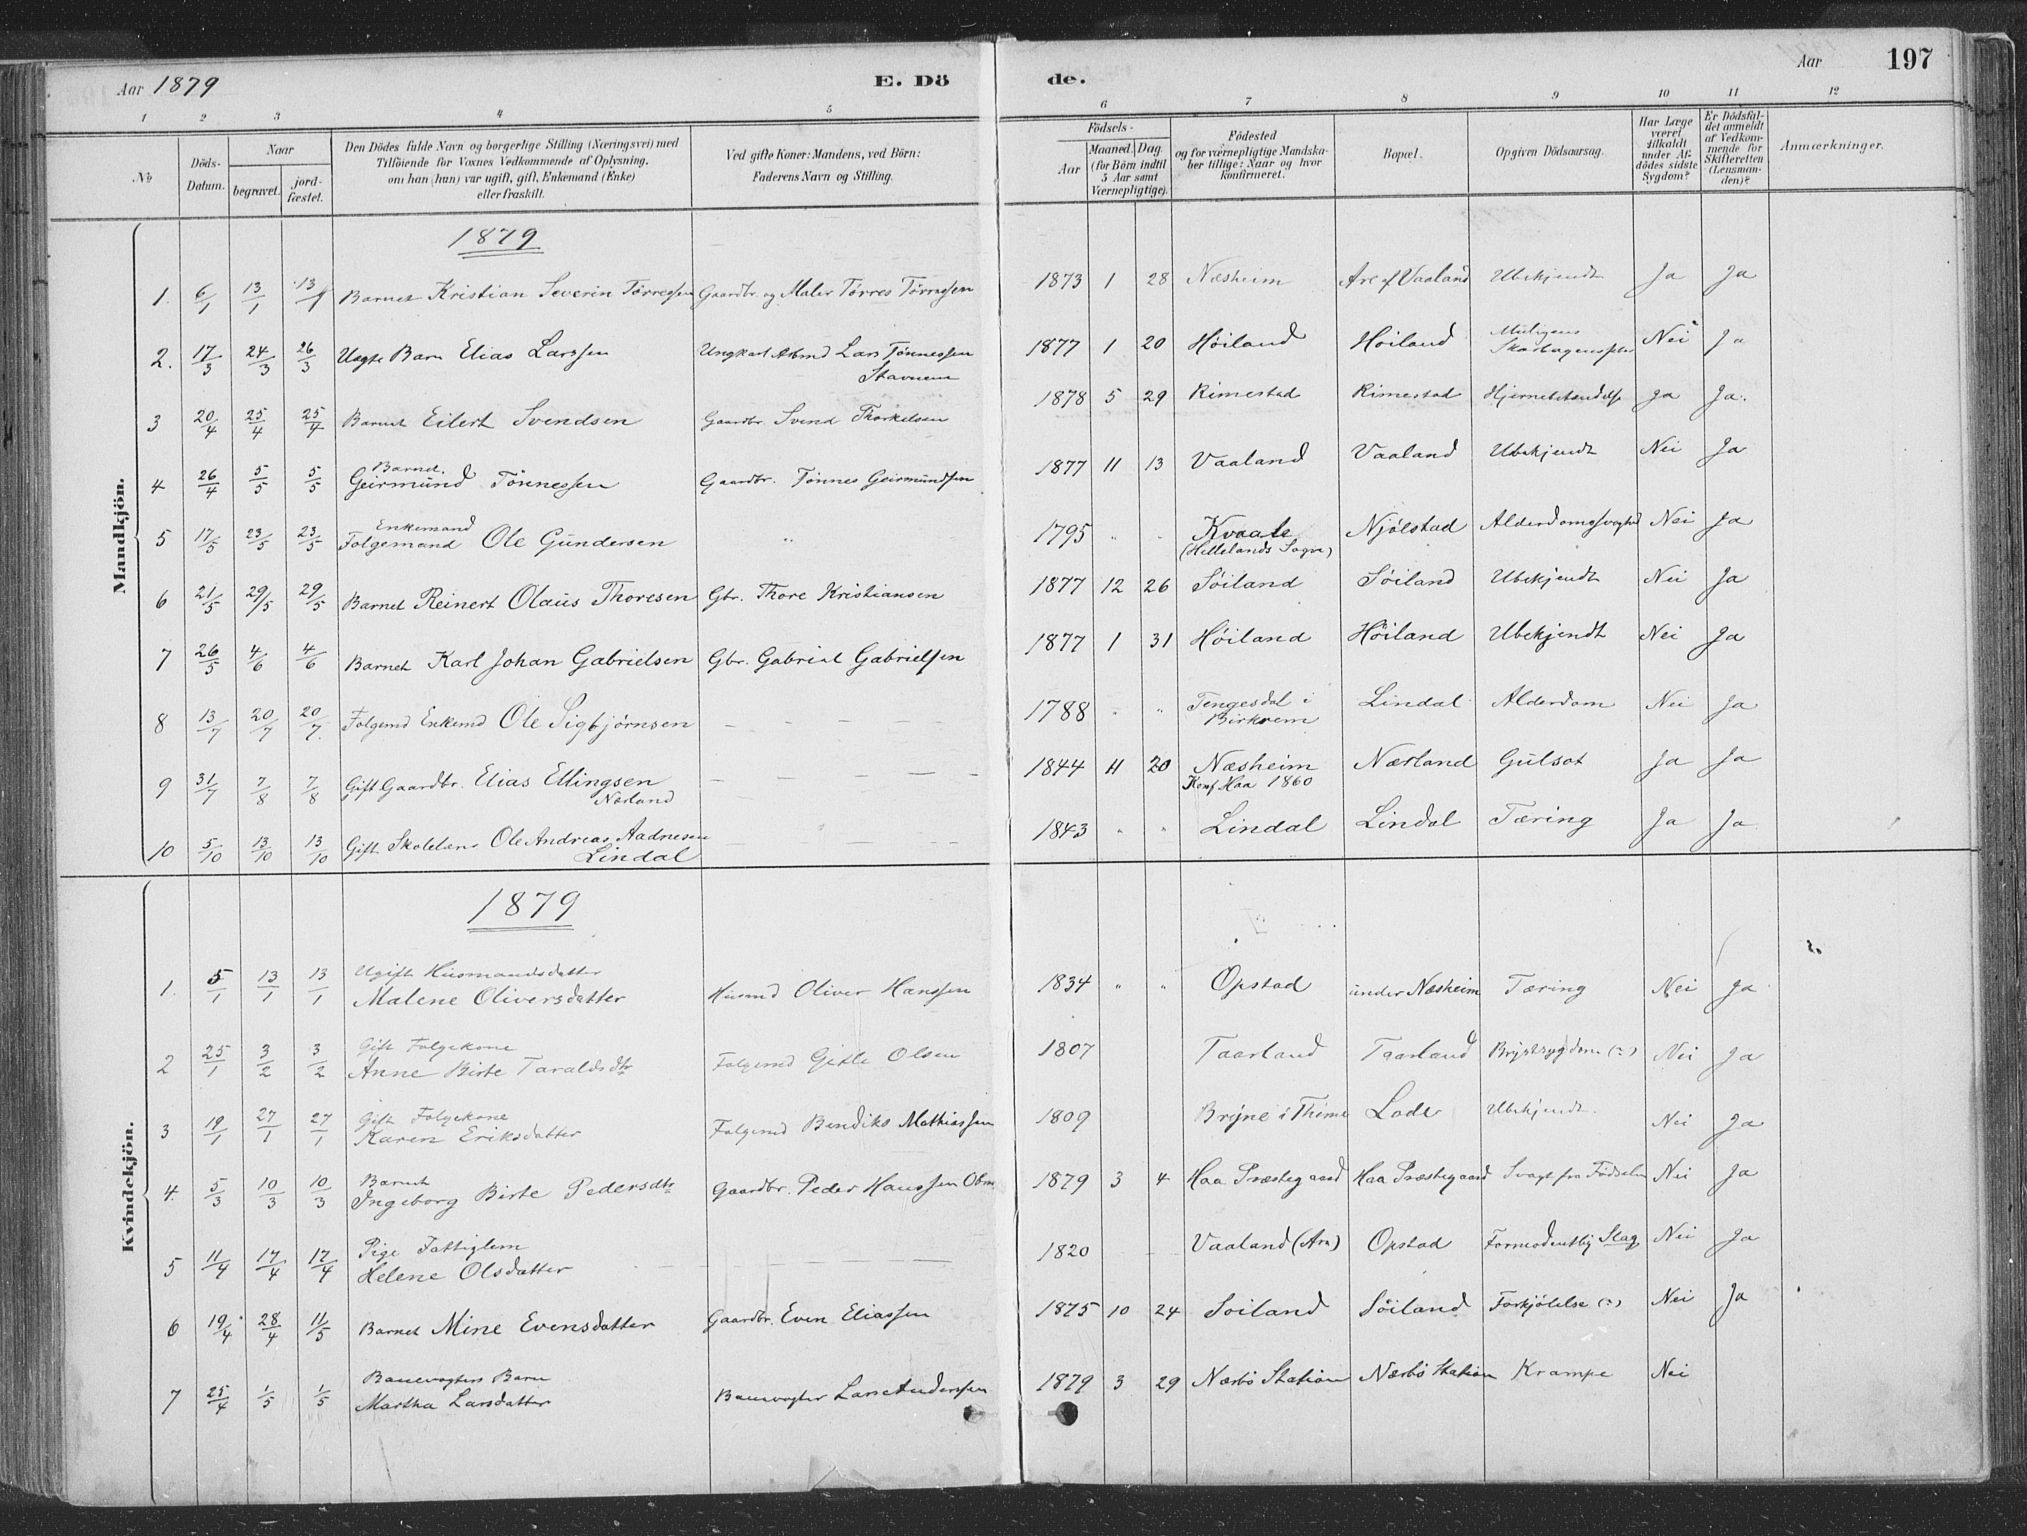 Aar 1879 E. Dö de. Aar 197
1 2 3 4 5 6 7 8 9 10 11 12
No
Döds-Datum.
Naar
begravet.
jordfæstet.
Den Dödes fulde Navn og borgerlige Stilling (Næringsvei) med
Tilföiende for Voxnes Vedkommende af Oplysning,
om han (hun) var ugift, gift, Enkemand (Enke)
eller fraskilt.
Ved gifte Koner: Mandens, ved Börn:
Faderens Navn og Stilling.
Födsels-
Aar
Maaned. Dag
(for Börn indtil
5 Aar samt
Værnepligtige).
Födested
og for værnepligtige Mandska-
ber tillige: Naar og hvor
konfirmeret.
Bopæl.
Opgiven Dödsaarsag.
Har Læge
været
tilkaldt
under Af-
dödes sidste
Sygdom?
Er Dödsfal-
det anmeldt
af Vedkom-
mende for
Skifteretten
(Lensman-
den)?
Anmærkninger.
Mandkjön.
1879
1. 6/1 13/1 13/1 Barnet Kristian Severin Tørressen Gaardbr. og Maler Tørres Tørressen 1873 1 28 Næsheim Are af Vaaland Ubekjendt Ja Ja
2. 17/3 24/3 26/3 Uægte Barn Elias Larssen Ungkarl Arbmd Lars Tønnessen
Stavnem 1877 1 20 Høiland Høiland Muligens
Skarlagensfeber Nei Ja
3 20/4 25/4 25/4 Barnet Eilert Svendsen Gaardbr. Svend Thorkelsen 1878 5 29 Rimestad Rimestad Hjernebetændelse Ja Ja.
4 26/4 5/5 5/5 Barnet
Geirmund Tönnessen Gaardbr. Tönnes Geirmundsen 1877 11 13 Vaaland Vaaland Ubekjendt Nei Ja
5 17/5 23/5 23/5 Enkemand
Folgemand Ole Gundersen " 1795 " " Kvaale
(Hellelands Sogn) Njölstad Alderdomssvaghed Nei Ja
6 21/5 29/5 29/5 Barnet Reinert Olaus Thoresen Gbr. Thore Kristiansen 1877 12 26 Söiland Söiland Ubekjendt Nei Ja
7 26/5 4/6 4/6 Barnet Karl Johan Gabrielsen Gbr. Gabriel Gabrielsen 1877 1 31 Höiland Höiland Ubekjendt Nei Ja
8 13/7 20/7 20/7. Folgemd Enkemd Ole Sigbjørnsen 1788 " " Tengesdal i
Birkrem Lindal Alderdom Nei Ja
9 31/7 7/8 7/8 Gift Gaardbr. Elias Ellingsen
Nærland 1844 11 20 Næsheim
Konf Haa 1860 Nærland Gulsot Ja Ja
10 5/10 13/10 13/10 Gift Skolelær Ole Andreas Aadnesen
Lindal 1843 " " Lindal Lindal Tæring Ja Ja
Kvindekjön.
1879
1. 5/1 13/1 13/1 Ugift Husmandsdatter
Malene Oliversdatter Husmd Oliver Hanssen 1834 " " Opstad under Næsheim Tæring Nei Ja
2 25/1 3/2 3/2 Gift Folgekone
Anne Birte Taraldsdtr Folgemd Gitle Olsen 1807 Taarland Taarland Brystsygdom (?) Nei Ja
3 19/1 27/1 27/1 Gift Folgekone
Karen Eriksdatter Folgemd Bendiks Mathiassen 1809 Bryne i Thime Lode Ubekjendt. Nei Ja
4. 5/3 10/3 10/3 Barnet
Ingeborg Birte Pedersdtr Gaardbr. Peder Hanssen Obr 1879 3 4 Haa Præstegaard Haa Præstegaard Svagt fra Födselen Nei Ja
5 11/4 17/4 17/4 Pige Fattiglem
Helene Olsdatter 1820 Vaaland (Are) Opstad Formodentlig Slag Nei Ja
6 19/4 28/4 11/5 Barnet Mine Evensdatter Gaardbr. Even Eliassen 1875 10 24 Soiland Söiland Forkjölelse (?) Nei Ja
7 25/4 1/5 1/5 Banevogters Barn
Martha Larsdatter Banevogter Lars Anderssen 1879 3 29 Nærbö Station Nærbö Station Krampe Nei